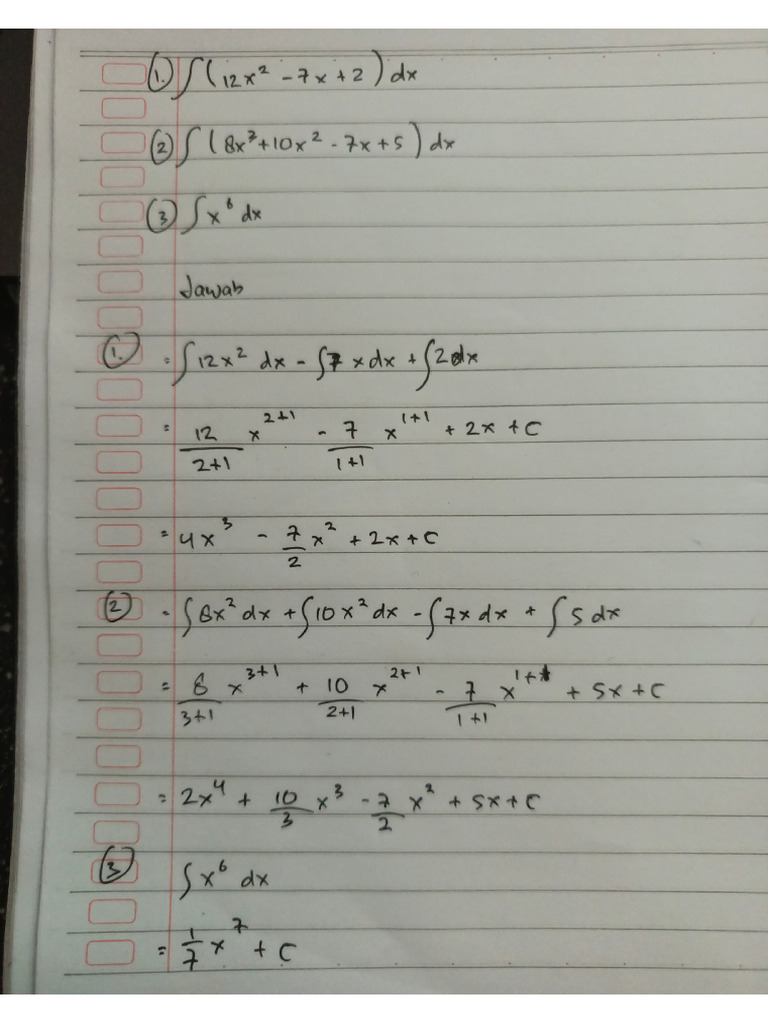 1. ∫(12x² - 7x + 2) dx
2 ∫(8x³ + 10x² - 7x + 5) dx
3 ∫x⁶ dx
Jawab
1. = ∫12x² dx - ∫7 x dx + ∫2 dx
= 12/(2+1) x^(2+1) - 7/(1+1) x^(1+1) + 2x + C
= 4x³ - 7/2 x² + 2x + C
2 = ∫8x² dx + ∫10x² dx - ∫7x dx + ∫5 dx
= 8/(3+1) x^(3+1) + 10/(2+1) x^(2+1) - 7/(1+1) x^(1+1) + 5x + C
= 2x⁴ + 10/3 x³ - 7/2 x² + 5x + C
3 ∫x⁶ dx
= 1/7 x⁷ + C